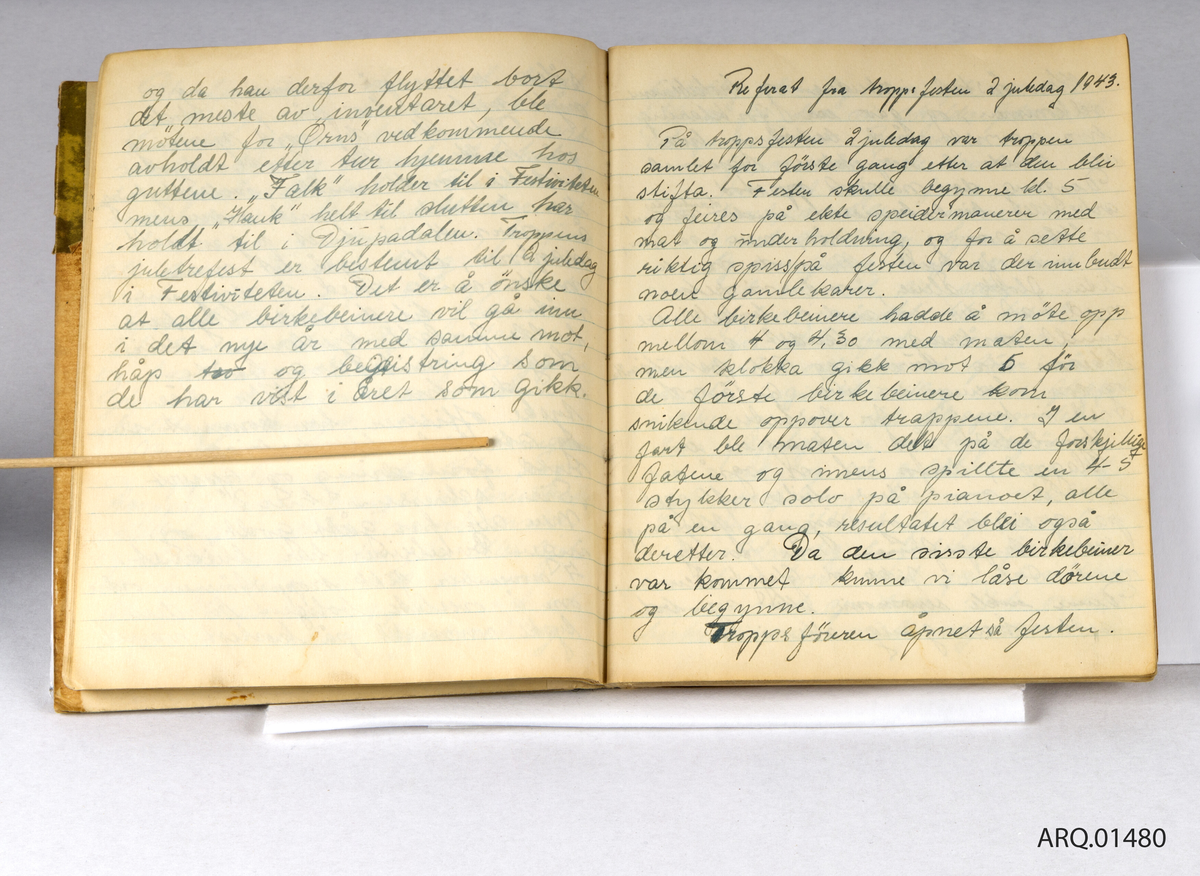 og da han derfor flyttet bort
det meste av inventaret, ble
møtene for „Ørns" vedkommende
avholdt etter tur hjemme hos
guttene. „Falk" holder til i Festiviteten
mens „Hauk" helt til slutten har
holdt til i Djupadalen. Troppens
juletrefest er bestemt til 2 juledag
i Festiviteten. Det er å önske
at alle birkebeinere vil gå inn
i det nye år med samme mot,
håp og begeistring som
de har vist i året som gikk.
Referat fra troppsfesten 2 juledag 1943.
På troppsfesten 2 juledag var troppen
samlet for förste gang etter at den blei
stifta. Festen skulle begynne kl. 5
og feires på ekte speidermanerer med
mat og underholdning, og for å sette
riktig spiss på festen var der innbudt
noen gamlekarer.
Alle birkebeinere hadde å möte opp
mellom 4 og 4,30 med maten,
men klokka gikk mot 5 för
de förste birkebeinere kom
snikende oppover trappene. I en
fart ble maten delt på de forskjellige
fatene og imens spillte en 4-5
stykker solo på pianoet, alle
på en gang, resultatet blei også
deretter. Da den sisste birkebeiner
var kommet kunne vi låse dörene
og begynne.
Troppsföreren åpnet så festen.
ARQ.01480